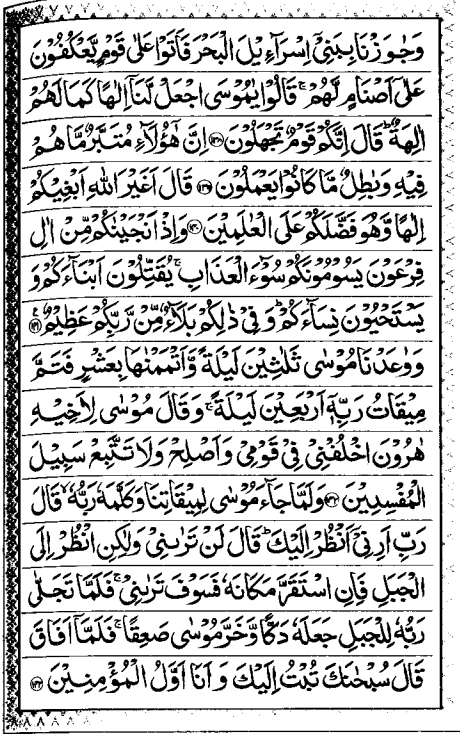 وَجٰوَزْنَا بِبَنِيْۤ اِسْرَآءِيْلَ الْبَحْرَ فَاَتَوْا عَلٰى قَوْمٍ يَّعْكُفُوْنَ
عَلٰۤى اَصْنَامٍ لَّهُمْ ۚ قَالُوْا يٰمُوْسَى اجْعَلْ لَّنَاۤ اِلٰهًا كَمَا لَهُمْ
اٰلِهَةٌ ؕ قَالَ اِنَّكُمْ قَوْمٌ تَجْهَلُوْنَ ﴿۱۳۸﴾ اِنَّ هٰۤؤُلَآءِ مُتَبَّرٌ مَّا هُمْ
فِيْهِ وَبٰطِلٌ مَّا كَانُوْا يَعْمَلُوْنَ ﴿۱۳۹﴾ قَالَ اَغَيْرَ اللّٰهِ اَبْغِيْكُمْ
اِلٰهًا وَّهُوَ فَضَّلَكُمْ عَلَى الْعٰلَمِيْنَ ﴿۱۴۰﴾ وَاِذْ اَنْجَيْنٰكُمْ مِّنْ اٰلِ
فِرْعَوْنَ يَسُوْمُوْنَكُمْ سُوْٓءَ الْعَذَابِ ۚ يُقَتِّلُوْنَ اَبْنَآءَكُمْ وَ
يَسْتَحْيُوْنَ نِسَآءَكُمْ ؕ وَفِيْ ذٰلِكُمْ بَلَآءٌ مِّنْ رَّبِّكُمْ عَظِيْمٌ ﴿۱۴۱﴾
وَوٰعَدْنَا مُوْسٰى ثَلٰثِيْنَ لَيْلَةً وَّاَتْمَمْنٰهَا بِعَشْرٍ فَتَمَّ
مِيْقَاتُ رَبِّهٖۤ اَرْبَعِيْنَ لَيْلَةً ۚ وَقَالَ مُوْسٰى لِاَخِيْهِ
هٰرُوْنَ اخْلُفْنِيْ فِيْ قَوْمِيْ وَاَصْلِحْ وَلَا تَتَّبِعْ سَبِيْلَ
الْمُفْسِدِيْنَ ﴿۱۴۲﴾ وَلَمَّا جَآءَ مُوْسٰى لِمِيْقَاتِنَا وَكَلَّمَهٗ رَبُّهٗ ۙ قَالَ
رَبِّ اَرِنِيْۤ اَنْظُرْ اِلَيْكَ ؕ قَالَ لَنْ تَرٰىنِيْ وَلٰكِنِ انْظُرْ اِلَى
الْجَبَلِ فَاِنِ اسْتَقَرَّ مَكَانَهٗ فَسَوْفَ تَرٰىنِيْ ۚ فَلَمَّا تَجَلّٰى
رَبُّهٗ لِلْجَبَلِ جَعَلَهٗ دَكًّا وَّخَرَّ مُوْسٰى صَعِقًا ۚ فَلَمَّاۤ اَفَاقَ
قَالَ سُبْحٰنَكَ تُبْتُ اِلَيْكَ وَاَنَا اَوَّلُ الْمُؤْمِنِيْنَ ﴿۱۴۳﴾